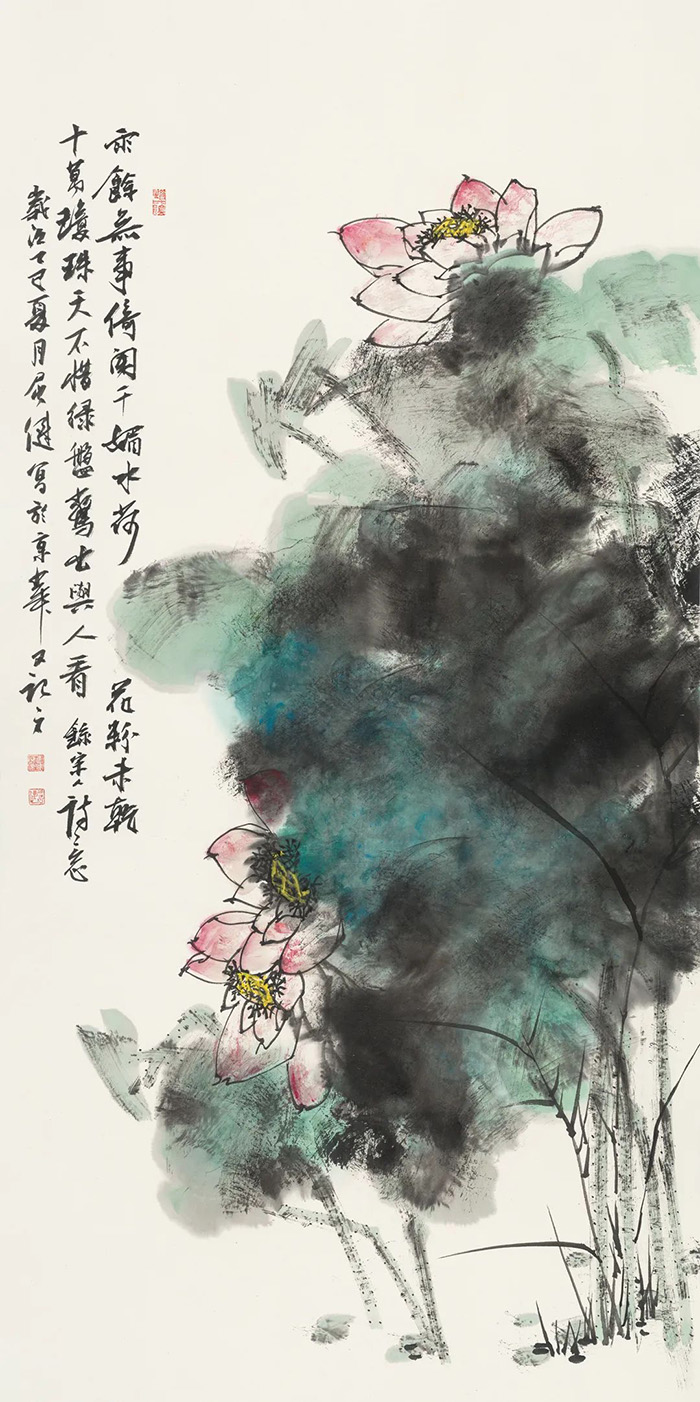 雨餘無事倚闌干媚水荷花粉未乾
十萬瓊珠天不惜綠盤擎出與人看 錄宋人詩之意
歲次巳夏月健寫於京華又記之